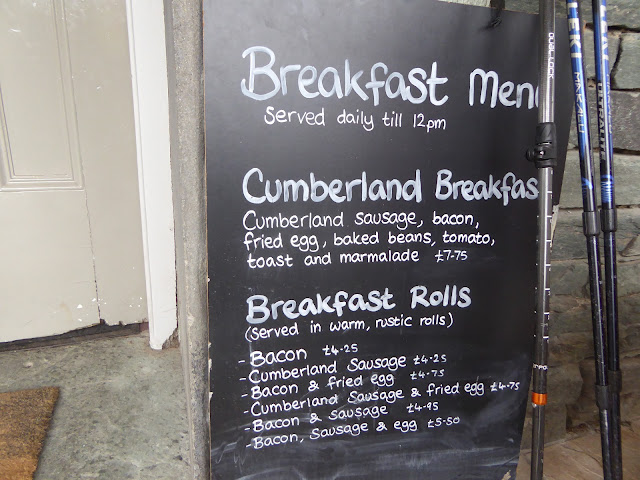 Breakfast Men
Served daily till 12pm
Cumberland Breakfas
Cumberland sausage, bacon,
fried egg, baked beans, tomato,
toast and marmalade £7.75
Breakfast Rolls
(served in warm, rustic rolls)
- Bacon £4.25
- Cumberland Sausage £4.25
- Bacon & fried egg £4.75
- Cumberland Sausage & fried egg £4.75
- Bacon & sausage £4.95
- Bacon, Sausage & egg £5.50